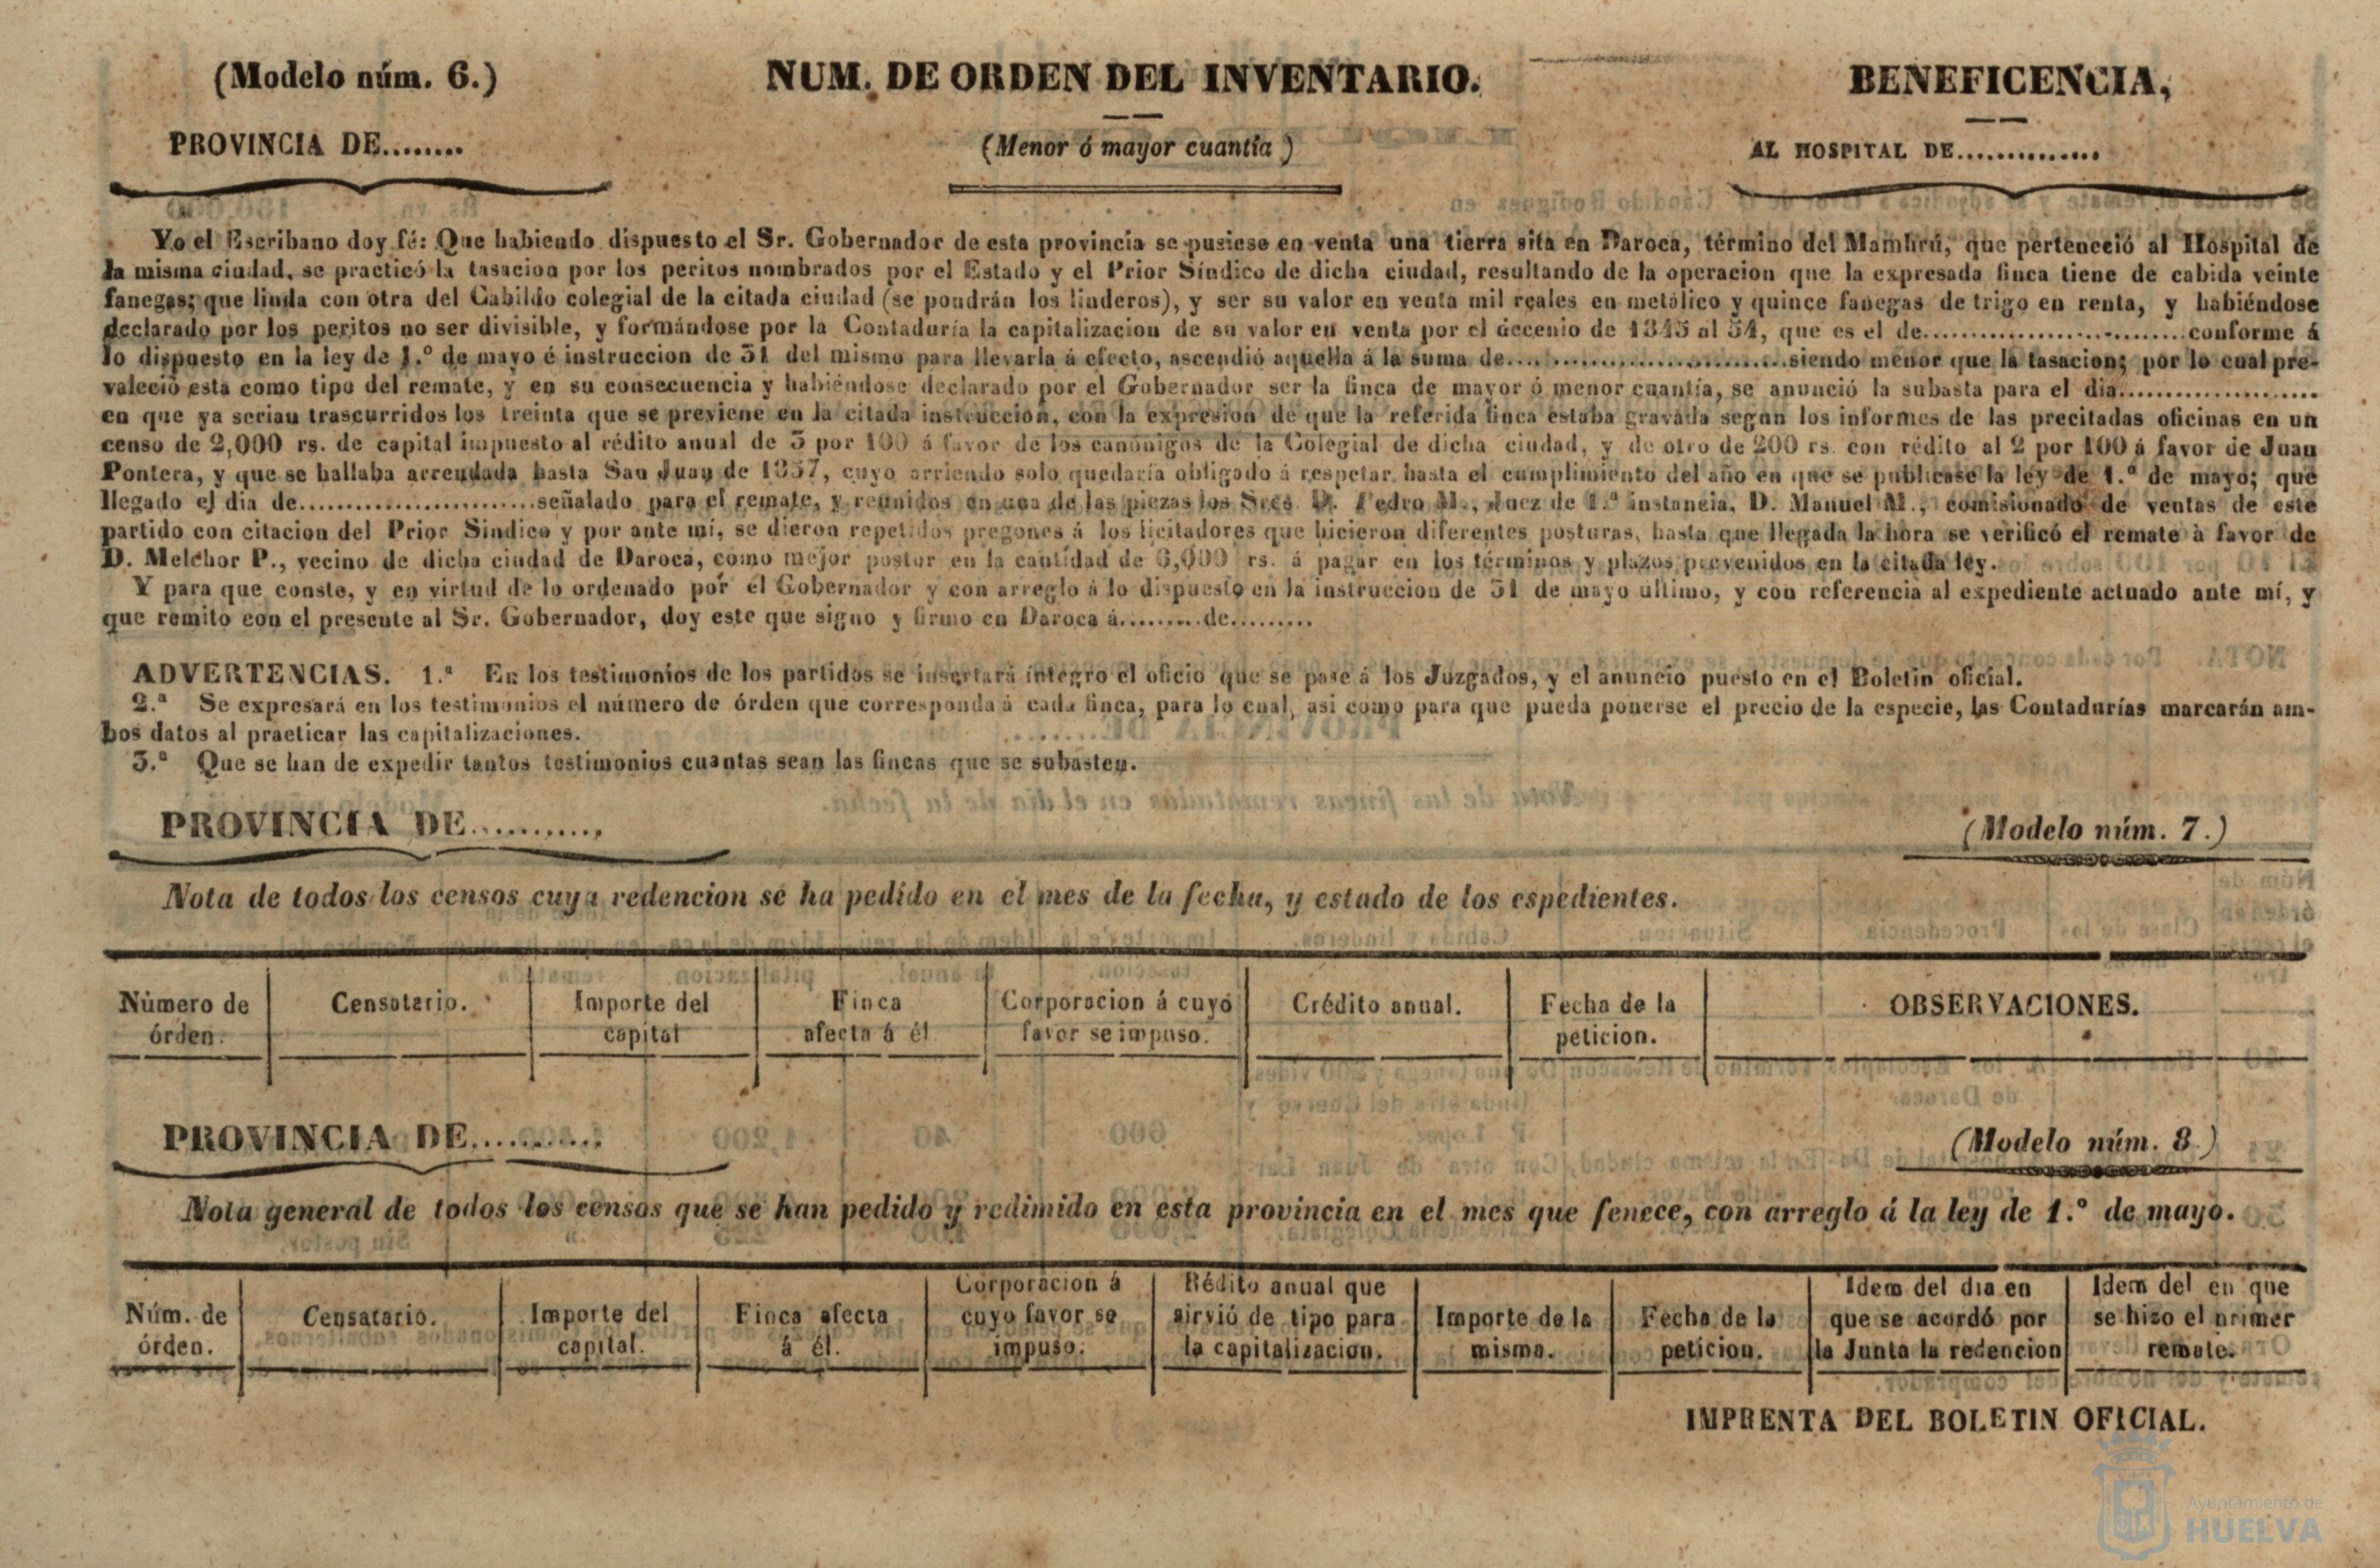 (Modelo núm. 6.)
NUM. DE ORDEN DEL INVENTARIO.
BENEFICENCIA,
PROVINCIA DE........
(Menor ó mayor cuantía )
AL HOSPITAL DE..............
Yo el Escribano doy fé: Que habiendo dispuesto el Sr. Gobernador de esta provincia se pusiese en venta una tierra sita en Daroca, término del Mambrú, que perteneció al Hospital de
la misma ciudad, se practicó la tasacion por los peritos nombrados por el Estado y el Prior Síndico de dicha ciudad, resultando de la operacion que la expresada finca tiene de cabida veinte
fanegas; que linda con otra del Cabildo colegial de la citada ciudad (se pondrán los linderos), y ser su valor en venta mil reales en metálico y quince fanegas de trigo en renta, y habiéndose
declarado por los peritos no ser divisible, y formándose por la Contaduría la capitalizacion de su valor en venta por el decenio de 1845 al 54, que es el de..........................conforme á
lo dispuesto en la ley de 1.º de mayo é instruccion de 31 del mismo para llevarla á efecto, ascendió aquella á la suma de............................siendo menor que la tasacion; por lo cual pre-
valeció esta como tipo del remate, y en su consecuencia y habiéndose declarado por el Gobernador ser la finca de mayor ó menor cuantía, se anunció la subasta para el dia....................
en que ya serian trascurridos los treinta que se previene en la citada instruccion, con la expresion de que la referida finca estaba gravada segun los informes de las precitadas oficinas en un
censo de 2,000 rs. de capital impuesto al rédito anual de 3 por 100 á favor de los canónigos de la Colegial de dicha ciudad, y de otro de 200 rs. con rédito al 2 por 100 á favor de Juan
Pontera, y que se hallaba arrendada hasta San Juan de 1857, cuyo arriendo solo quedaría obligado á respetar hasta el cumplimiento del año en que se publicase la ley de 1.º de mayo; que
llegado el dia de........................señalado para el remate, y reunidos en una de las piezas los Sres. D. Pedro M., Juez de 1.ª instancia, D. Manuel M., comisionado de ventas de este
partido con citacion del Prior Sindico y por ante mí, se dieron repetidos pregones á los licitadores que hicieron diferentes posturas, hasta que llegada la hora se verificó el remate à favor de
D. Melchor P., vecino de dicha ciudad de Daroca, como mejor postor en la cantidad de 6,000 rs. á pagar en los términos y plazos prevenidos en la citada ley.
Y para que conste, y en virtud de lo ordenado por el Gobernador y con arreglo á lo dispuesto en la instruccion de 31 de mayo ultimo, y con referencia al expediente actuado ante mí, y
que remito con el presente al Sr. Gobernador, doy este que signo y firmo en Daroca á.........de.........
ADVERTENCIAS. 1.ª En los testimonios de los partidos se insertará integro el oficio que se pase á los Juzgados, y el anuncio puesto en el Boletin oficial.
2.ª Se expresará en los testimonios el número de órden que corresponda á cada finca, para lo cual, asi como para que pueda ponerse el precio de la especie, las Contadurías marcarán am-
bos datos al practicar las capitalizaciones.
3.ª Que se han de expedir tantos testimonios cuantas sean las fincas que se subasten.
PROVINCIA DE...........
(Modelo núm. 7.)
Nota de todos los censos cuya redencion se ha pedido en el mes de la fecha, y estado de los espedientes.
Número de
órden.
Censatario.
Importe del
capital
Finca
afecta á él
Corporacion á cuyo
favor se impuso.
Crédito anual.
Fecha de la
peticion.
OBSERVACIONES.
PROVINCIA DE...........
(Modelo núm. 8.)
Nota general de todos los censos que se han pedido y redimido en esta provincia en el mes que fenece, con arreglo á la ley de 1.º de mayo.
Núm. de
órden.
Censatario.
Importe del
capital.
Finca afecta
á él.
Corporacion á
cuyo favor se
impuso.
Rédito anual que
sirvió de tipo para
la capitalizacion.
Importe de la
misma.
Fecha de la
peticion.
Idem del dia en
que se acordó por
la Junta la redencion
Idem del en que
se hizo el primer
remate.
IMPRENTA DEL BOLETIN OFICIAL.
Ayuntamiento de
HUELVA